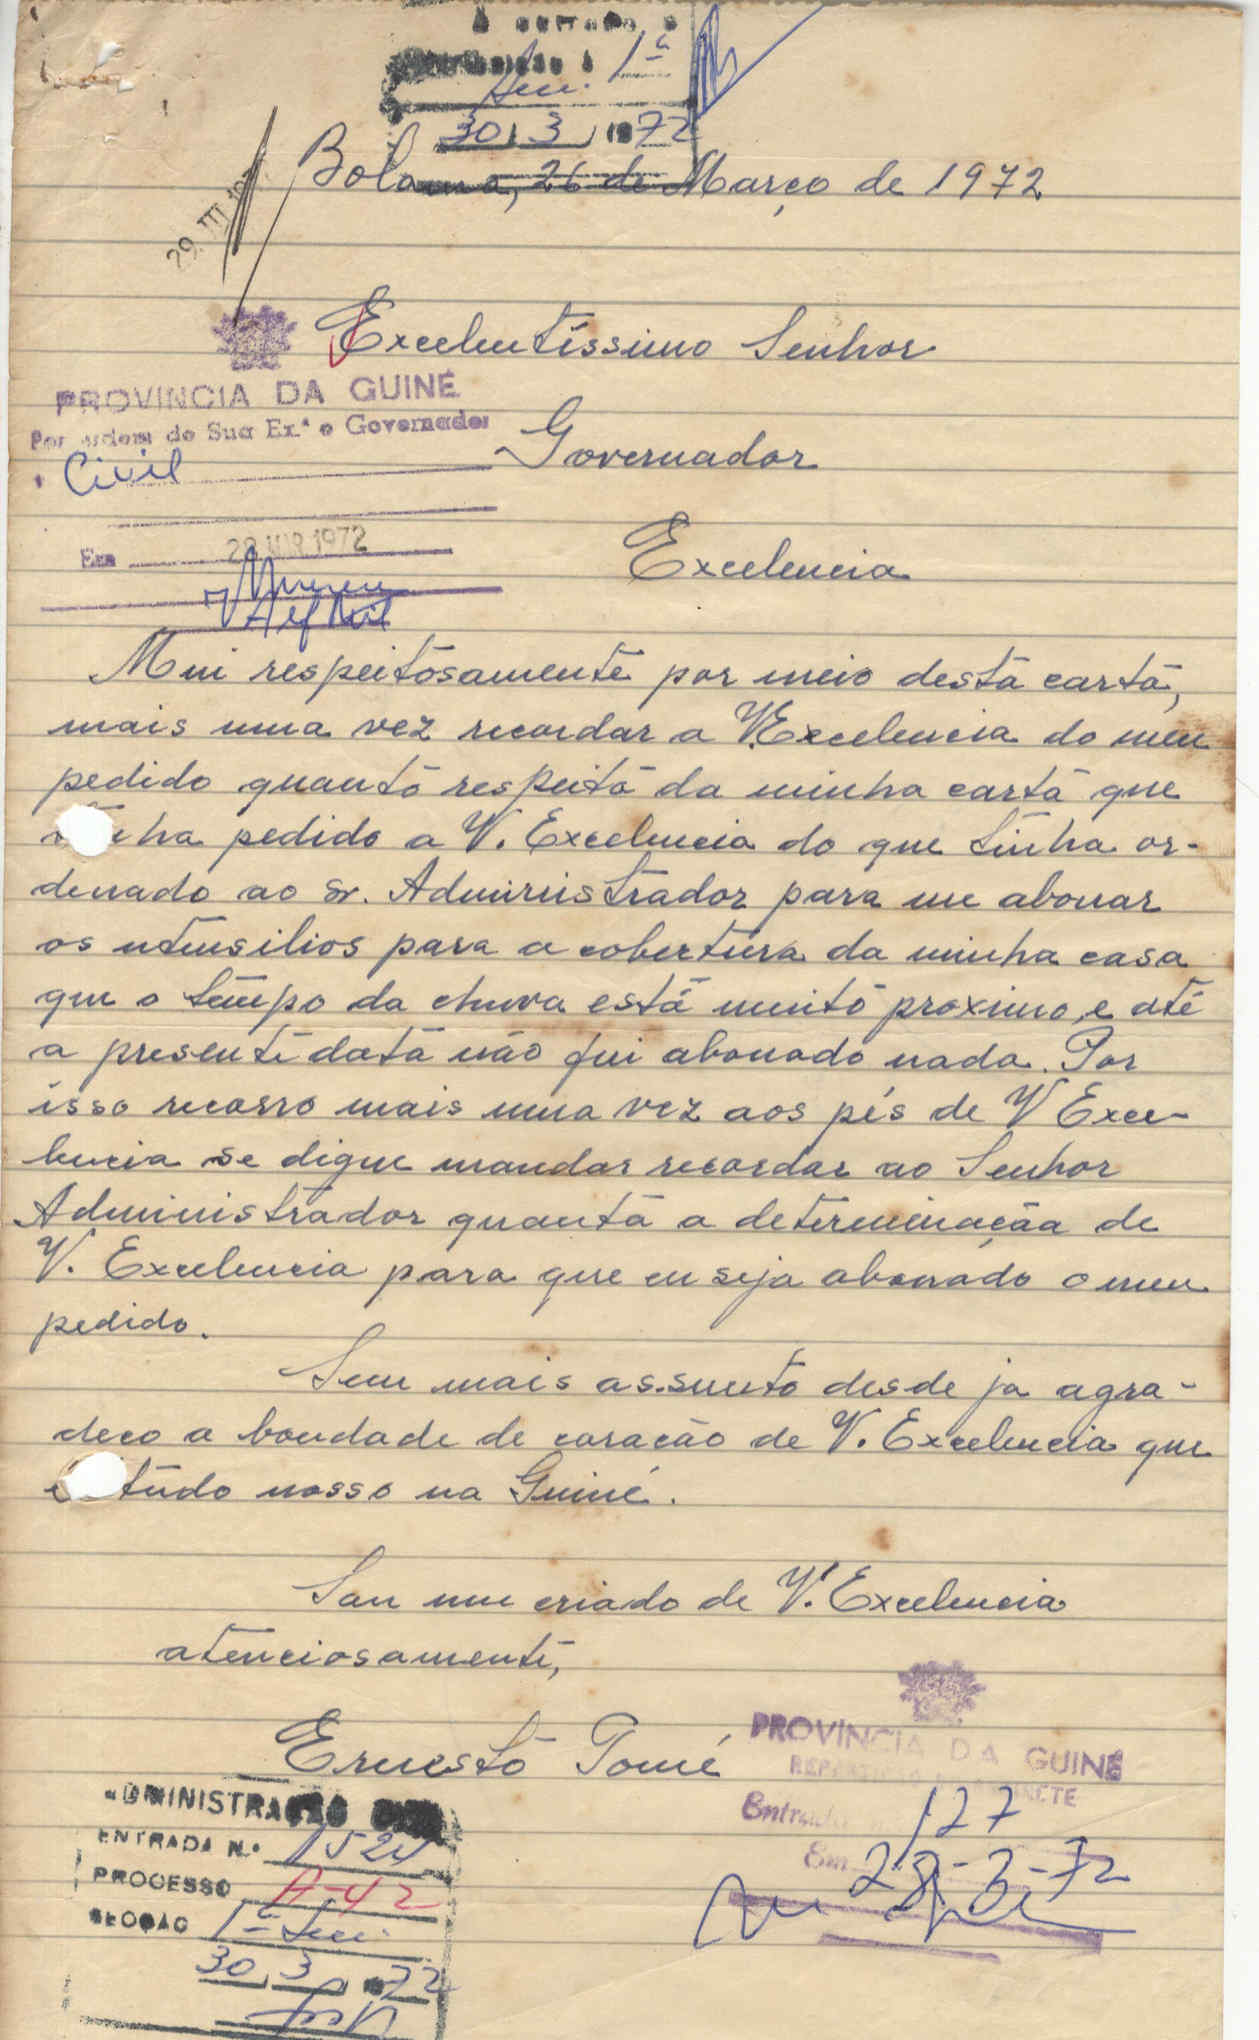 1ª
30 3 1972
29 III 197
Bolama, 26 de Março de 1972
Excelentíssimo Senhor
PROVINCIA DA GUINÉ
Por ordem de Sua Ex.ª o Governador
Governador
Civil
Em 28 MAR. 1972
Excelencia
Mui respeitosamente por meio desta carta,
mais uma vez recordar a V. Excelencia do meu
pedido quanto respeito da minha carta que
tinha pedido a V. Excelencia do que tinha or-
denado ao Sr. Administrador para me abonar
os utensilios para a cobertura da minha casa
que o tempo da chuva está muito proximo, e até
a presente data não fui abonado nada. Por
isso recorro mais uma vez aos pés de V Exce-
lencia se digne mandar recordar ao Senhor
Administrador quanta a determinaçãa de
V. Excelencia para que eu seja abonado o meu
pedido.
Sem mais assunto desde ja agra-
deço a bondade de coração de V. Excelencia que
é tudo nosso na Guiné.
Sou um criado de V. Excelencia
atenciosamente,
Ernesto Tomé
PROVINCIA DA GUINÉ
REPARTIÇÃO DO GABINETE
Entrada 127
Em 28-3-72
ADMINISTRAÇÃO
ENTRADA N.º 1524
PROCESSO A-42
SECÇÃO 1ª Sec.
30 3 1972